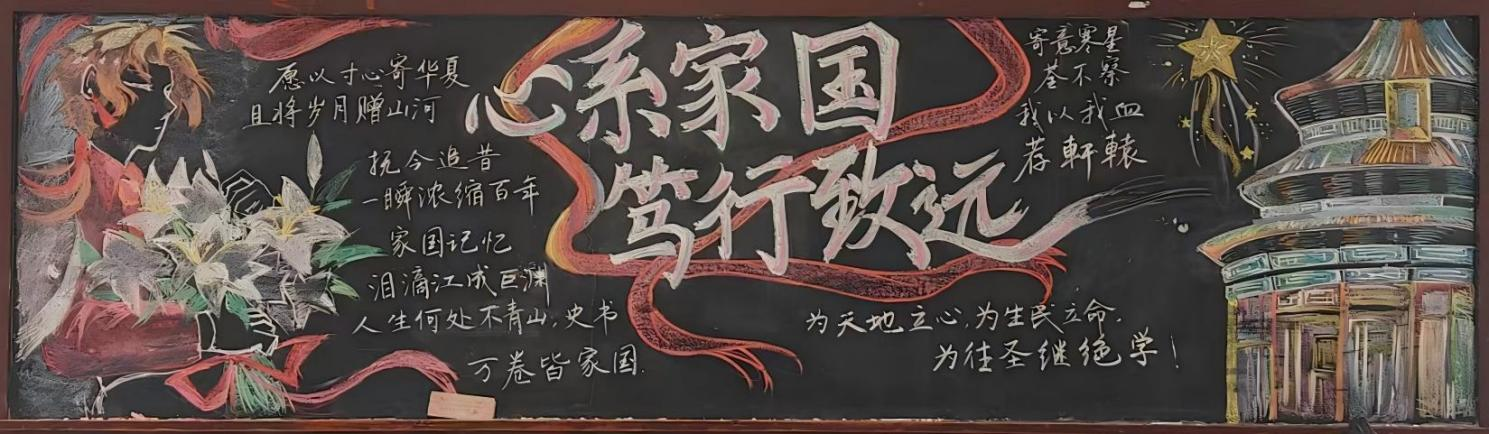 心系家国
笃行致远
愿以寸心寄华夏
且将岁月赠山河
抚今追昔
一瞬浓缩百年
家国记忆
泪滴江成巨渊
人生何处不青山,史书
万卷皆家国.
寄意寒星
荃不察
我以我血
荐軒轅
为天地立心,为生民立命.
为往圣继绝学!